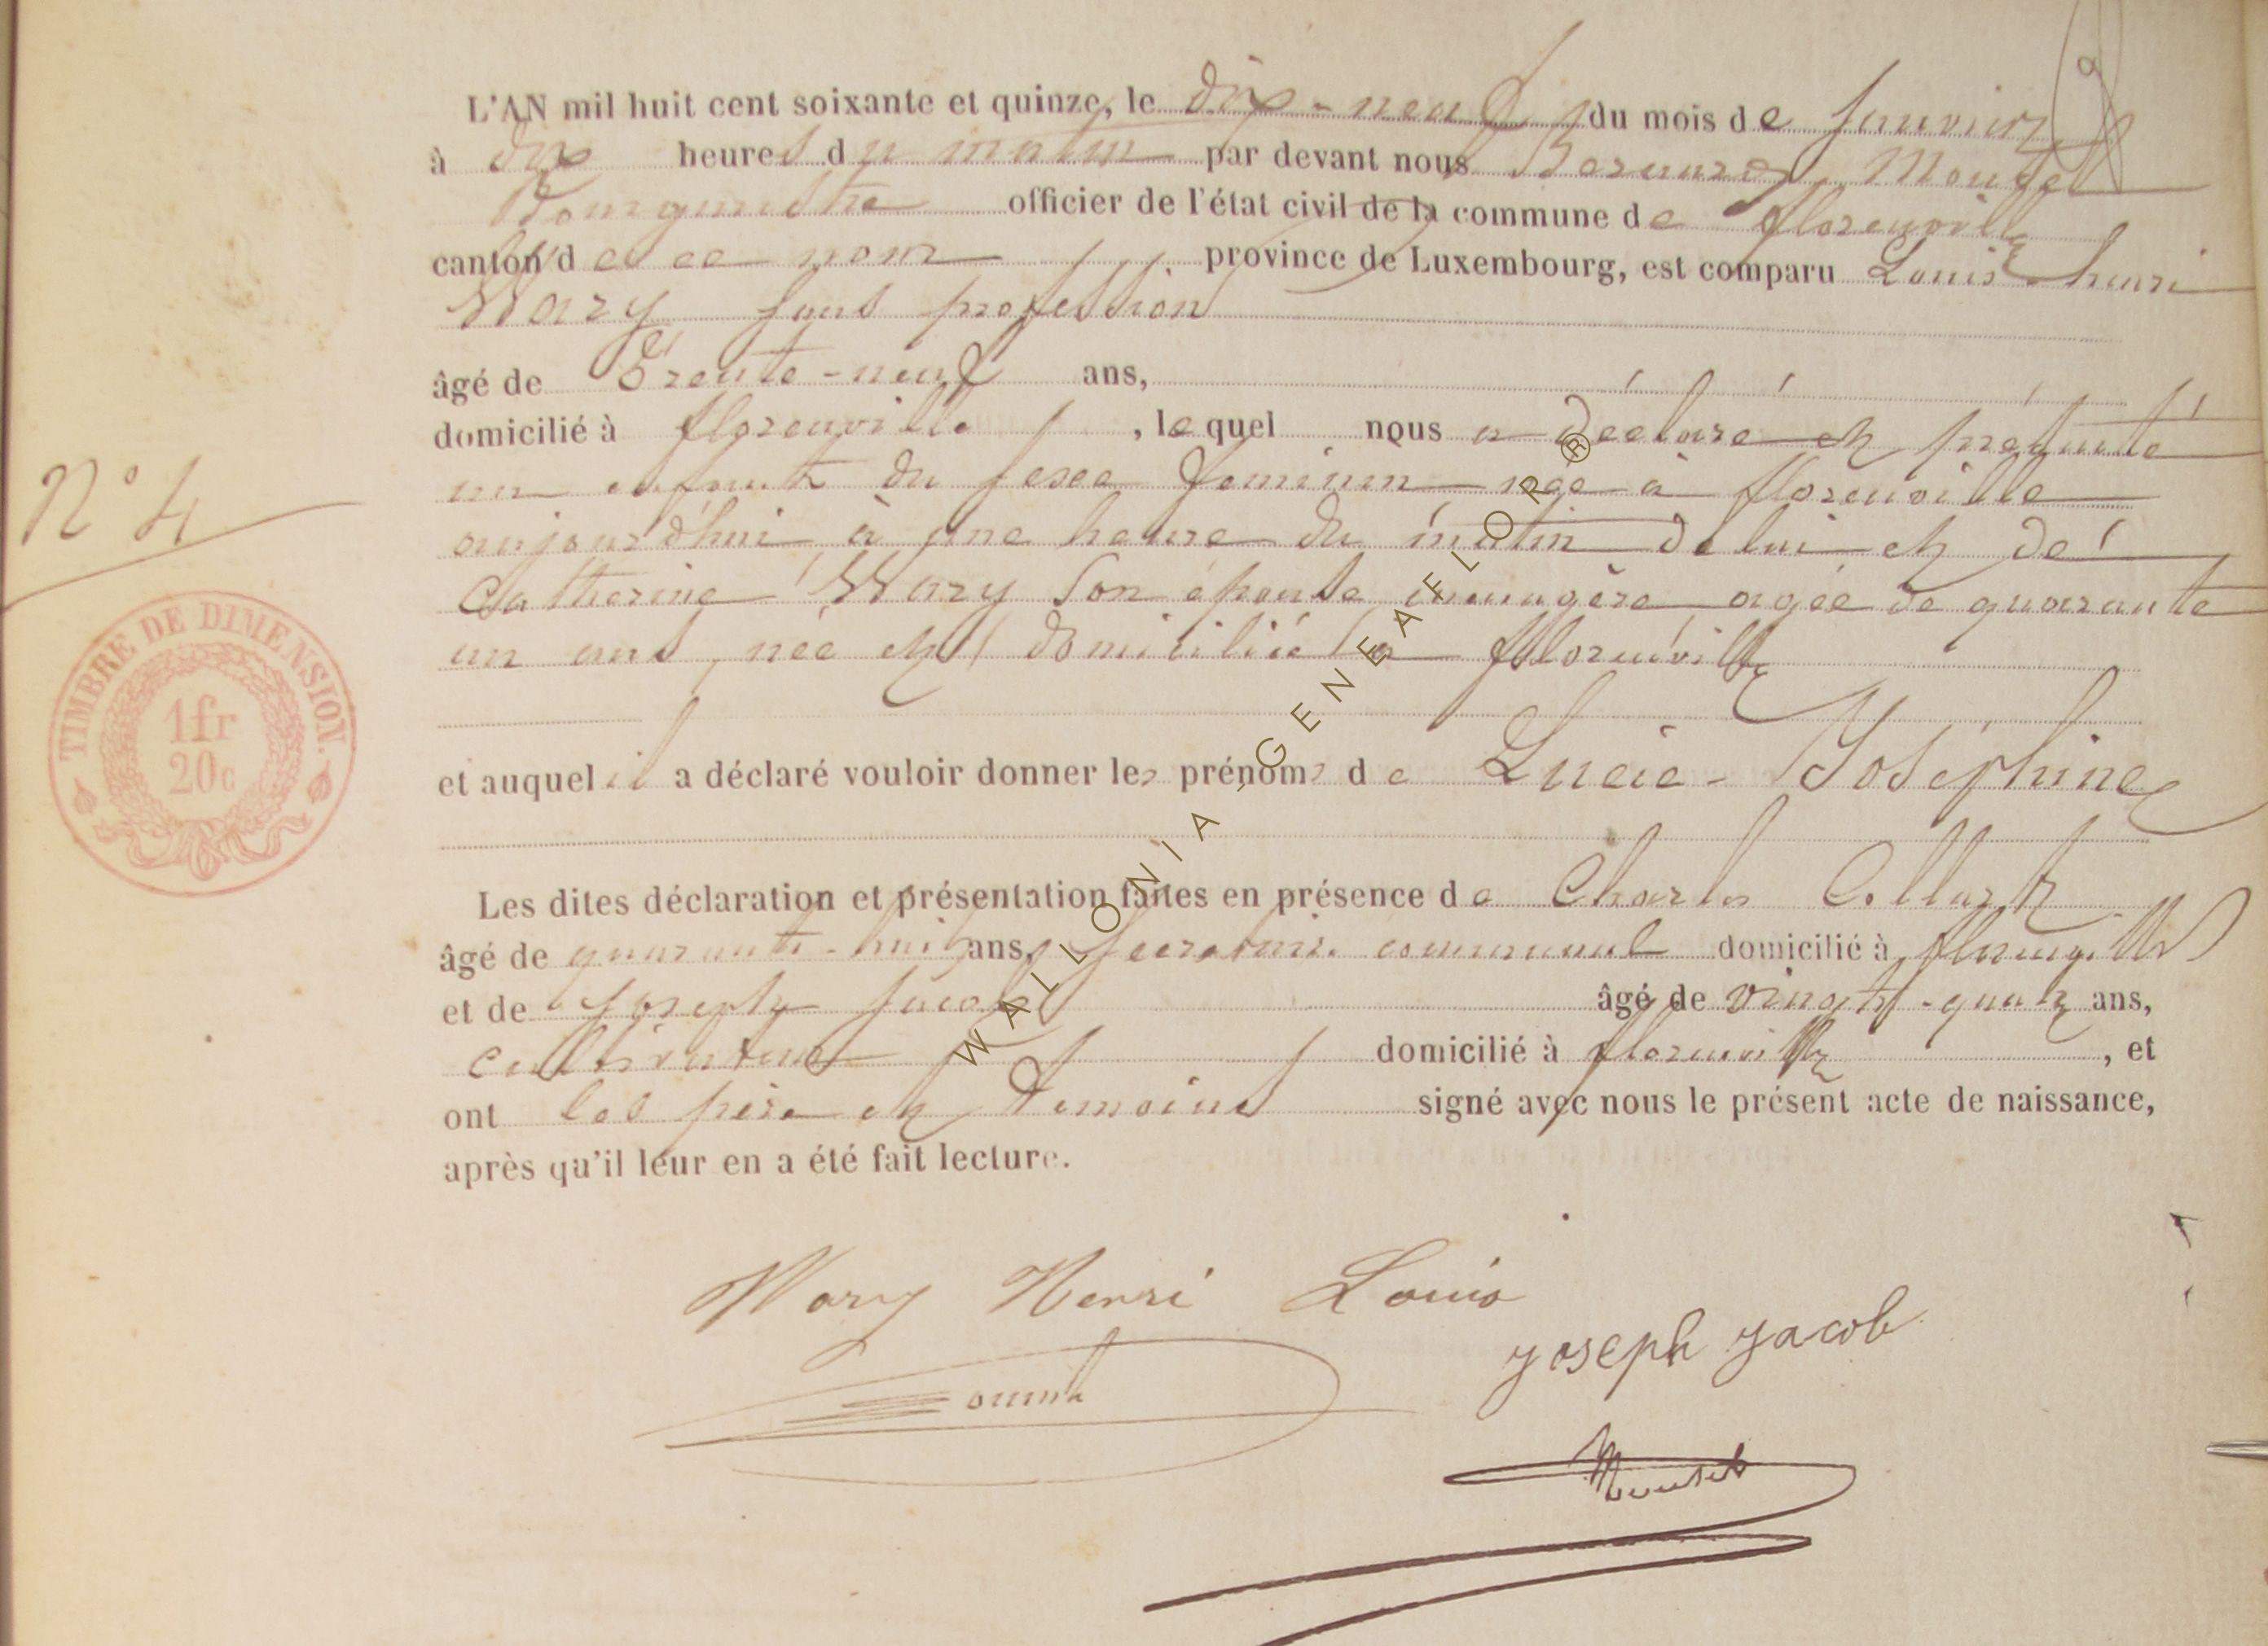 L'AN mil huit cent soixante et quinze, le dix-neuf du mois de Janvier
à dix heures du matin par devant nous Bernard
Bourgmestre officier de l'état civil de la commune de florenville
canton de ce nom province de Luxembourg, est comparu Louis henri
Wary sans profession
âgé de Trente-neuf ans,
domicilié à florenville, lequel nous a déclaré et présenté
un enfant du sexe feminin née à florenville
aujourd'hui à une heure du matin de lui et de
N° 4
Catherine Wary son épouse ménagère agée de quarante
un ans, née et domiciliée à florenville
TIMBRE DE DIMENSION.
1fr
20c
et auquel il a déclaré vouloir donner les prénoms de Lucie-Joséphine
Les dites déclaration et présentation faites en présence de Charles Collart
âgé de quarante-huit ans, secrétaire communal domicilié à florenville
et de Joseph Jacob âgé de vingt-quatre ans,
cultivateur domicilié à florenville, et
ont les père et témoins signé avec nous le présent acte de naissance,
après qu'il leur en a été fait lecture.
Wary Henri Louis
Joseph Jacob
WALLONIA - GENEAFLOR ®